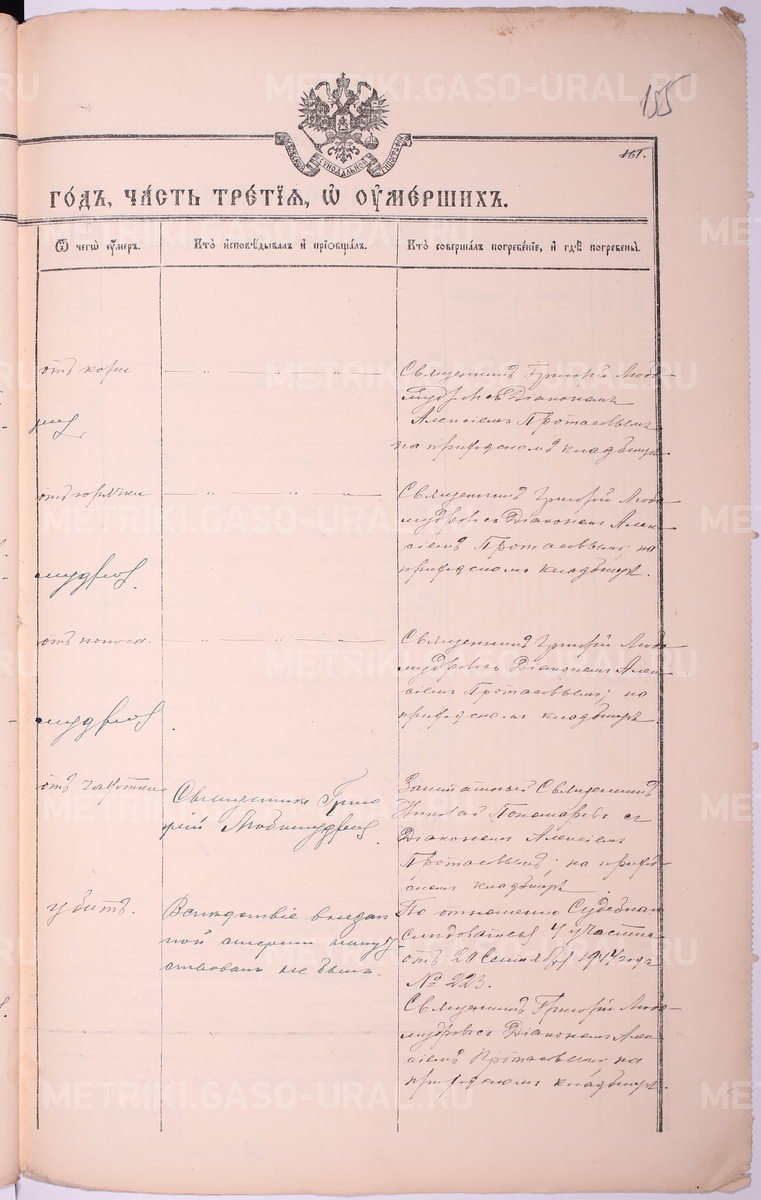 155
МОСКОВСКОЙ СѴНОДАЛЬНОЙ ТИПОГРАФІИ
161.
ГО́ДЪ, ЧА́СТЬ ТРЕ́ТІѦ, Ѡ҆ ОУ҆МЕ́РШИХЪ.
Ѿ чегѡ̀ ᲂу҆́меръ. Кто̀ и҆сповѣ́дывалъ и҆ прїѡбща́лъ. Кто̀ соверша́лъ погребе́нїе, и҆ гдѣ̀ погребены̀.
отъ кори
Священникъ Григорій Любо-
мудровъ съ Діакономъ
Алексіемъ Протасовымъ
на приходскомъ кладбищѣ.
отъ горячки
Священникъ Григорій Любо-
мудровъ съ Діакономъ Алек-
сіемъ Протасовымъ; на
приходскомъ кладбищѣ.
мудровъ
отъ поноса.
Священникъ Григорій Любо-
мудровъ съ Діакономъ Алек-
сіемъ Протасовымъ; на
приходскомъ кладбищѣ
мудровъ
отъ чахотки
Священникъ Григо-
рій Любомудровъ.
Заштатный Священникъ
Николай Пономаревъ съ
Діакономъ Алексіемъ
Протасовымъ; на приход-
скомъ кладбищѣ
убитъ.
Вслѣдствіе внезап
ной смерти напут
ствованъ не былъ.
По отношенію Судебнаго
Слѣдователя 4 участка
отъ 20 Сентября 1917 года
№ 223.
Священникъ Григорій Любо-
мудровъ съ Діакономъ Алек-
сіемъ Протасовымъ на
приходскомъ кладбищѣ.
METRIKI.GASO-URAL.RU